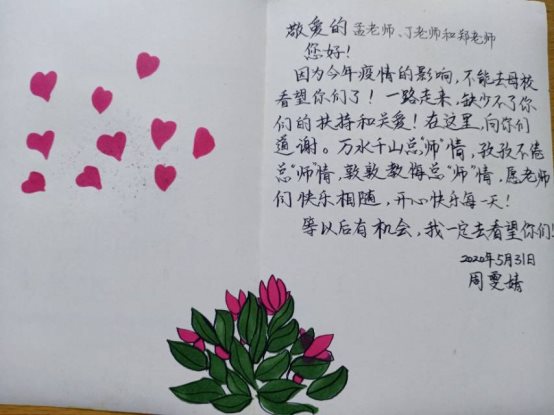 敬爱的 孟老师、丁老师和郑老师
您好！
因为今年疫情的影响，不能去母校
看望你们了！一路走来，缺少不了你
们的扶持和关爱！在这里，向你们
道谢。万水千山总"师"情，孜孜不倦
总"师"情，敦敦教悔总"师"情，愿老师
们快乐相随，开心快乐每一天！
等以后有机会，我一定去看望你们！
2020年5月31日
周雯婧